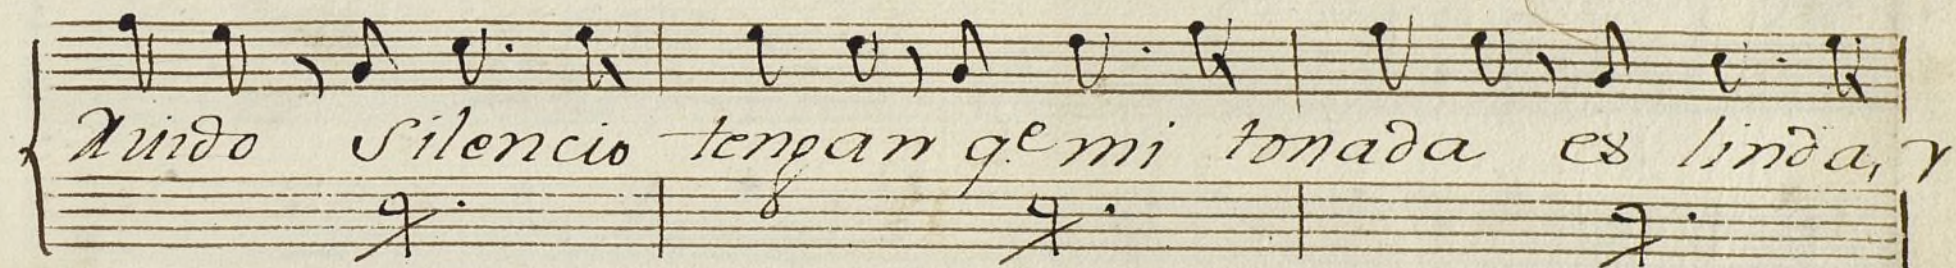 Ruido Silencio tengan q.e mi tonada es linda, y